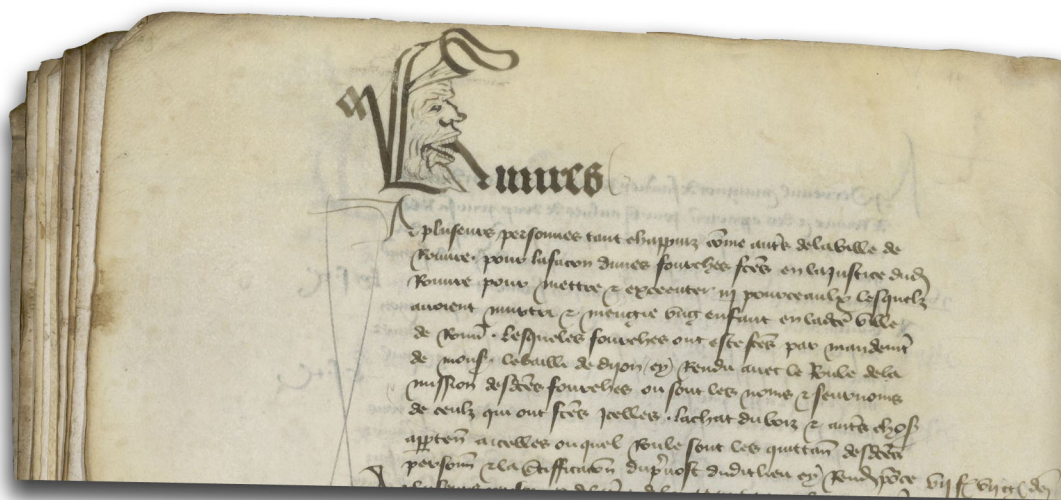 Rouures
A pluseurs personnes tant chappuiz cōme autrs de la ville de
Rouure . pour la facon dunes fourches fctes en la justice dud
Rouure pour mettre & executer iij pourceaulx lesquelx
auoient murtri & mengie ung enfant en ladcte ville
de Rouur . lesqueles fourches ont este fctes par mandemt
de monsr le bailli de dijon cy Rendu auec le Role de la
mission desdctes fourches ou sont les noms & seurnoms
de ceulx qui ont fctes jcelles . lachat du boiz & autrs chos
appten a icelles ouquel Role sont les quittan desdctes
personn & la certifficacon du pruost dudit lieu cy Rendu pour ce vij f